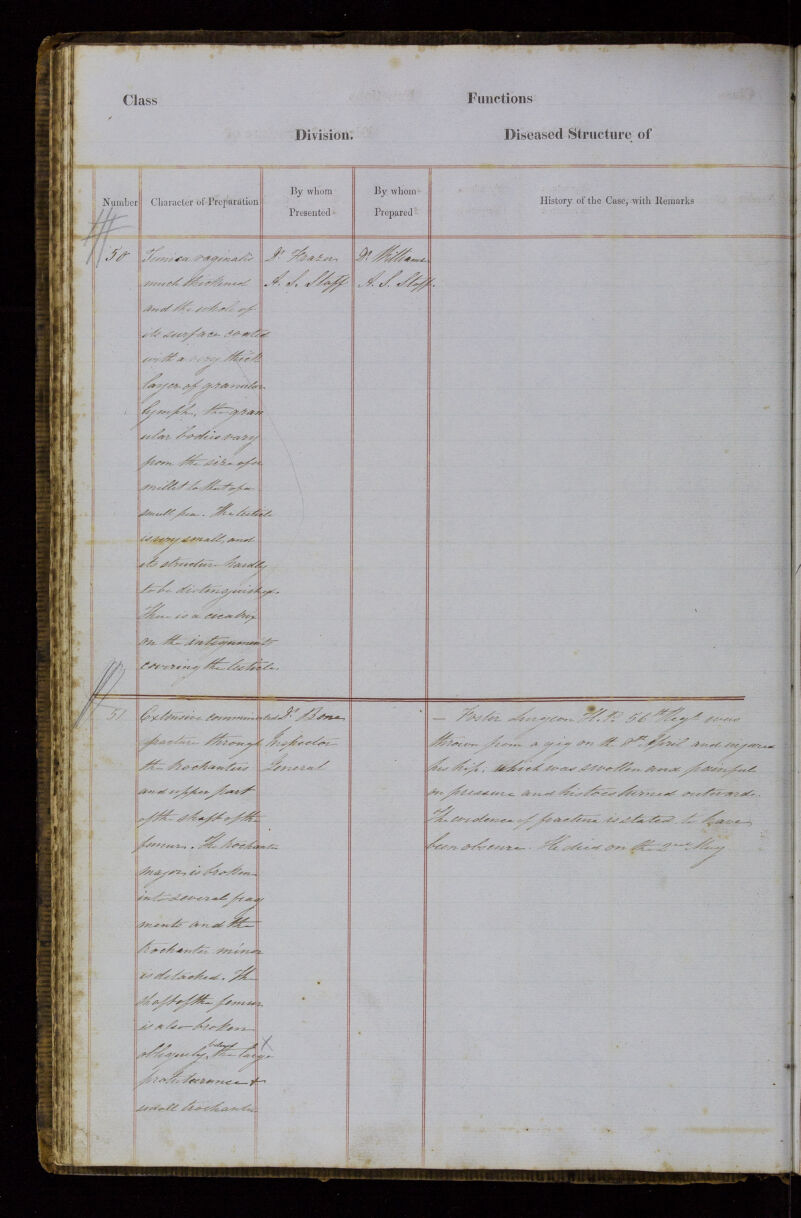 Class
Functions
Division.
Diseased Structure of
Number
Character of Preparation
By whom
Presented
By whom
Prepared
History of the Case, with Remarks
50
Tunica vaginalis
much thickened
and the whole of
its surface coated
with a very thick
layer of granular
lymph, the gran
ular bodies vary
from the size of a
millet to that of a
small pea. The testicle
is very small, and
its structure hardly
to be distinguished.
There is a cicatrix
on the integuments
covering the testicle.
Dr. Frazer
A. S. Staff
Dr. Williams
A. S. Staff.
51
Extensive comminuted
fracture through
the trochanters
and upper part
of the shaft of the
femur. The trochanter
major is broken
into several frag
ments and the
trochanter minor
is detached. The
shaft of the femur
is also broken
obliquely, the large
protuberance &
small trochanter
Dr. Bone
Inspector
General
— Foster Surgeon H.P. 56th Regt. was
thrown from a gig on the 8th April and injured
his hip; which was swollen and painful
on pressure and his toes turned outwards.
The evidence of fracture is stated to have
been obscure. He died on the 2nd May